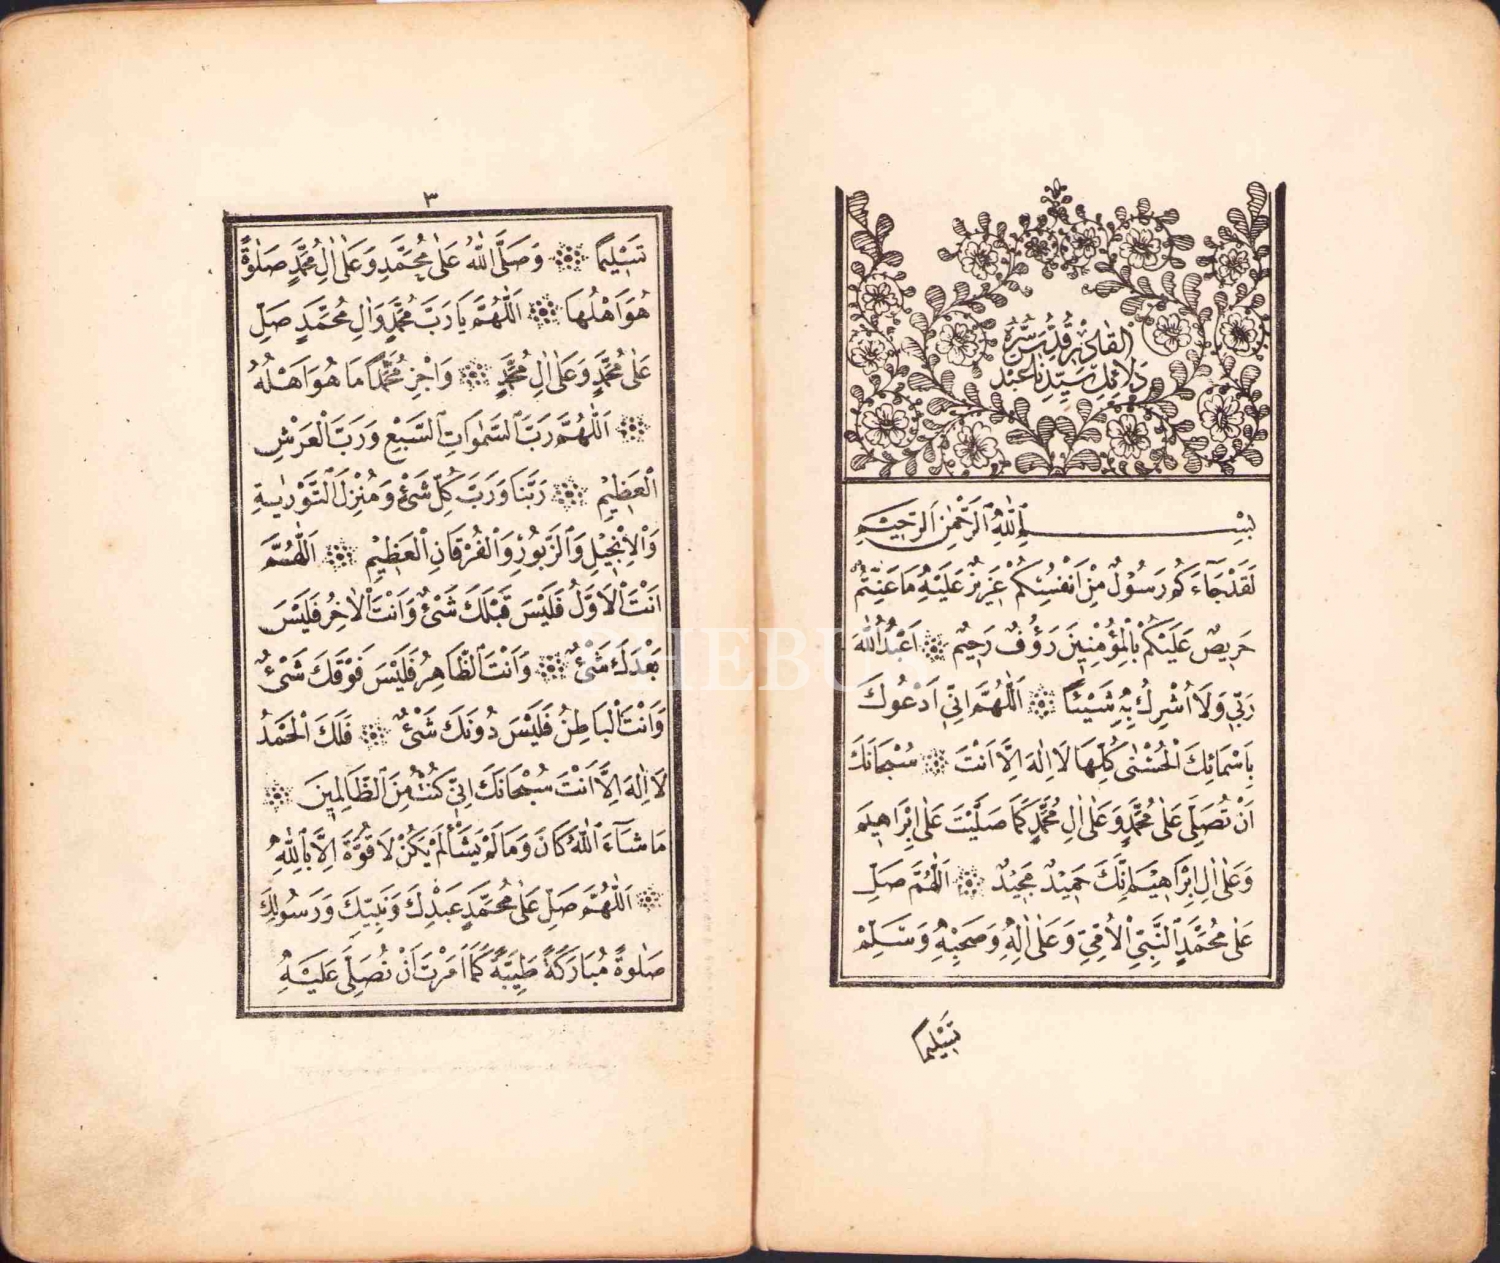 القادر قدس سره
دلائل سيدنا عبد
بِسْمِ اللّٰهِ الرَّحْمٰنِ الرَّحِيمِ
لَقَدْ جَآءَكُمْ رَسُولٌ مِنْ اَنْفُسِكُمْ عَزِيزٌ عَلَيْهِ مَا عَنِتُّمْ
حَرِيصٌ عَلَيْكُمْ بِالْمُؤْمِنِينَ رَؤُفٌ رَحِيمٌ ۞ اَعْبُدُ اللّٰهَ
رَبِّي وَلَا اُشْرِكُ بِهِ شَيْئًا ۞ اَللّٰهُمَّ اِنِّي اَدْعُوكَ
بِاَسْمَائِكَ الْحُسْنٰى كُلِّهَا لَا اِلٰهَ اِلَّا اَنْتَ ۞ سُبْحَانَكَ
اَنْ تُصَلِّيَ عَلٰى مُحَمَّدٍ وَعَلٰى اٰلِ مُحَمَّدٍ كَمَا صَلَّيْتَ عَلٰى اِبْرَاهِيمَ
وَعَلٰى اٰلِ اِبْرَاهِيمَ اِنَّكَ حَمِيدٌ مَجِيدٌ ۞ اَللّٰهُمَّ صَلِّ
عَلٰى مُحَمَّدٍ النَّبِيِّ الْاُمِّيِّ وَعَلٰى اٰلِهِ وَصَحْبِهِ وَسَلِّمْ
تَسْلِيمًا
٣
تَسْلِيمًا ۞ وَصَلَّى اللّٰهُ عَلٰى مُحَمَّدٍ وَعَلٰى اٰلِ مُحَمَّدٍ صَلٰوةً
هُوَ اَهْلُهَا ۞ اَللّٰهُمَّ يَا رَبَّ مُحَمَّدٍ وَاٰلِ مُحَمَّدٍ صَلِّ
عَلٰى مُحَمَّدٍ وَعَلٰى اٰلِ مُحَمَّدٍ ۞ وَاجْزِ مُحَمَّدًا مَا هُوَ اَهْلُهُ
۞ اَللّٰهُمَّ رَبَّ السَّمٰوَاتِ السَّبْعِ وَرَبَّ الْعَرْشِ
الْعَظِيمِ ۞ رَبَّنَا وَرَبَّ كُلِّ شَيْءٍ وَمُنْزِلَ التَّوْرٰيةِ
وَالْاِنْجِيلِ وَالزَّبُورِ وَالْفُرْقَانِ الْعَظِيمِ ۞ اَللّٰهُمَّ
اَنْتَ الْاَوَّلُ فَلَيْسَ قَبْلَكَ شَيْءٌ وَاَنْتَ الْاٰخِرُ فَلَيْسَ
بَعْدَكَ شَيْءٌ ۞ وَاَنْتَ الظَّاهِرُ فَلَيْسَ فَوْقَكَ شَيْءٌ
وَاَنْتَ الْبَاطِنُ فَلَيْسَ دُونَكَ شَيْءٌ ۞ فَلَكَ الْحَمْدُ
لَا اِلٰهَ اِلَّا اَنْتَ سُبْحَانَكَ اِنِّي كُنْتُ مِنَ الظَّالِمِينَ ۞
مَا شَآءَ اللّٰهُ كَانَ وَمَا لَمْ يَشَأْ لَمْ يَكُنْ لَا قُوَّةَ اِلَّا بِاللّٰهِ
۞ اَللّٰهُمَّ صَلِّ عَلٰى مُحَمَّدٍ عَبْدِكَ وَنَبِيِّكَ وَرَسُولِكَ
صَلٰوةً مُبَارَكَةً طَيِّبَةً كَمَا اَمَرْتَ اَنْ نُصَلِّيَ عَلَيْهِ